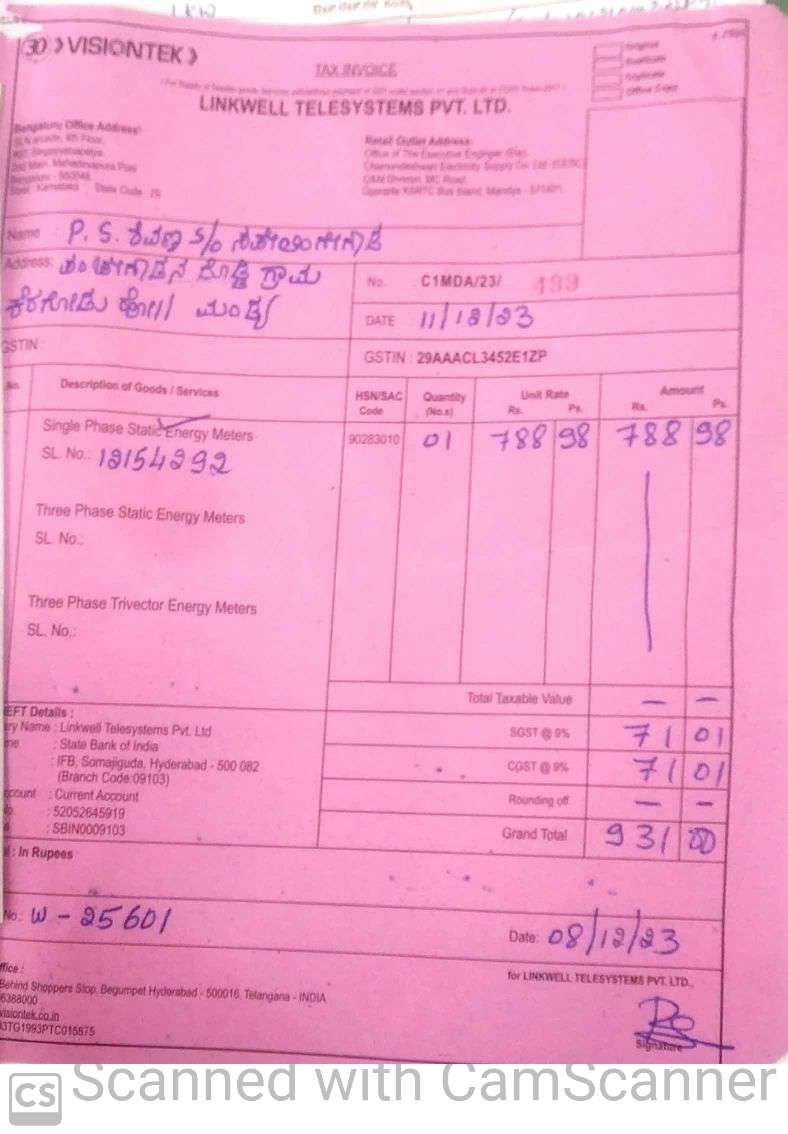 VISIONTEK
TAX INVOICE
Original
Duplicate
Triplicate
Office Copy
LINKWELL TELESYSTEMS PVT. LTD.
Bengaluru Office Address:
Retail Outlet Address:
Office of The Executive Engineer (Ele)
State Code : 29
Opposite KSRTC Bus Stand, Mandya - 571401
Name P. S. ಶಿವಣ್ಣ S/O
Address: ಗ್ರಾಮ
ಕೆರಗೋಡು ಹೋ|| ಮಂಡ್ಯ
No. : C1MDA/23/ 499
DATE : 11/12/23
GSTIN
GSTIN : 29AAACL3452E1ZP
No. Description of Goods / Services HSN/SAC Code Quantity (No.s) Unit Rate Rs. Ps. Amount Rs. Ps.
Single Phase Static Energy Meters 90283010 01 788 98 788 98
SL. No.: 12154292
Three Phase Static Energy Meters
SL. No.:
Three Phase Trivector Energy Meters
SL. No.:
Total Taxable Value — —
EFT Details :
Name : Linkwell Telesystems Pvt. Ltd
SGST @ 9% 71 01
: State Bank of India
: IFB, Somajiguda, Hyderabad - 500 082
CGST @ 9% 71 01
(Branch Code:09103)
: Current Account
Rounding off — —
: 52052645919
: SBIN0009103
Grand Total 931 00
: In Rupees
No.: W - 25601
Date: 08/12/23
for LINKWELL TELESYSTEMS PVT. LTD.,
Behind Shoppers Stop, Begumpet Hyderabad - 500016, Telangana - INDIA
6388000
visiontek.co.in
3TG1993PTC015575
Signature
CS Scanned with CamScanner